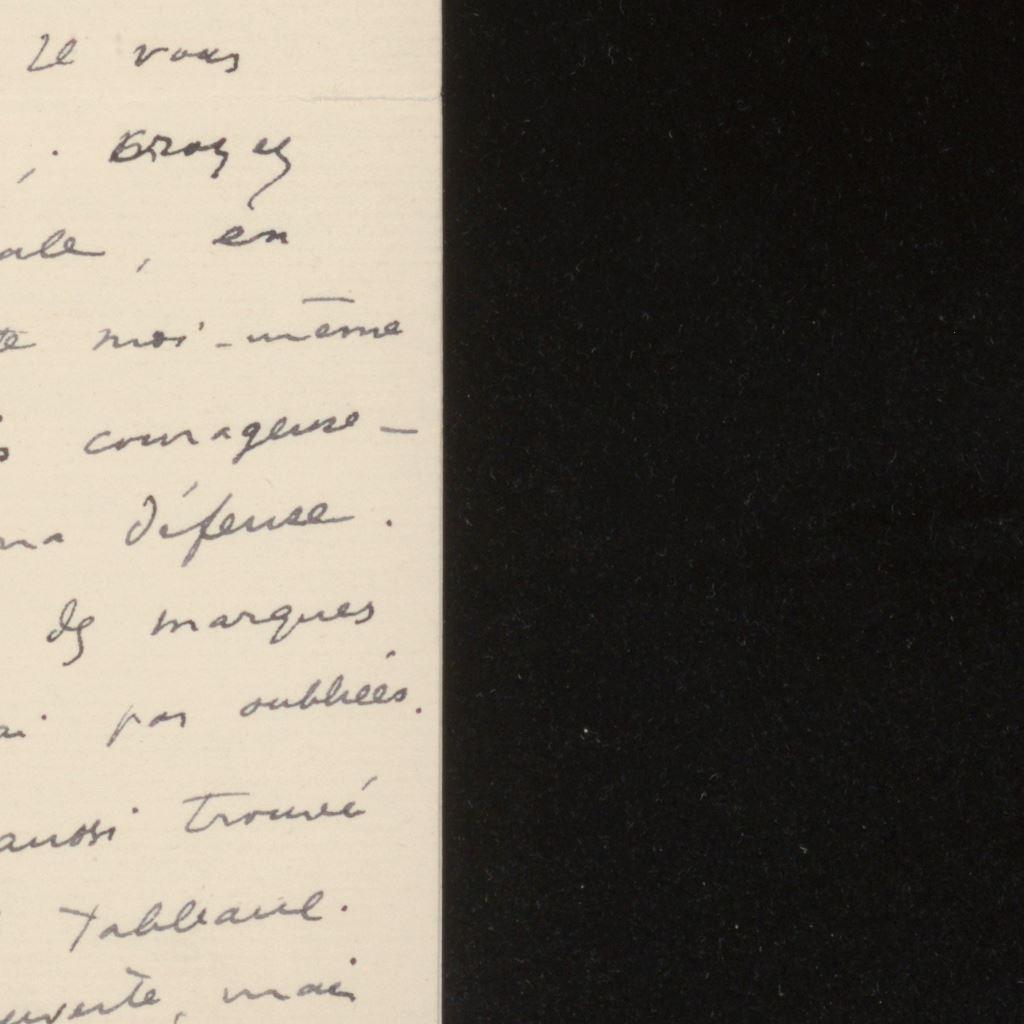 Je vous
, . croyez
ale, en
te moi-même
s courageuse-
ma défense.
des marques
ai pas oubliées.
aussi trouvé
tableau.
uverte, mais